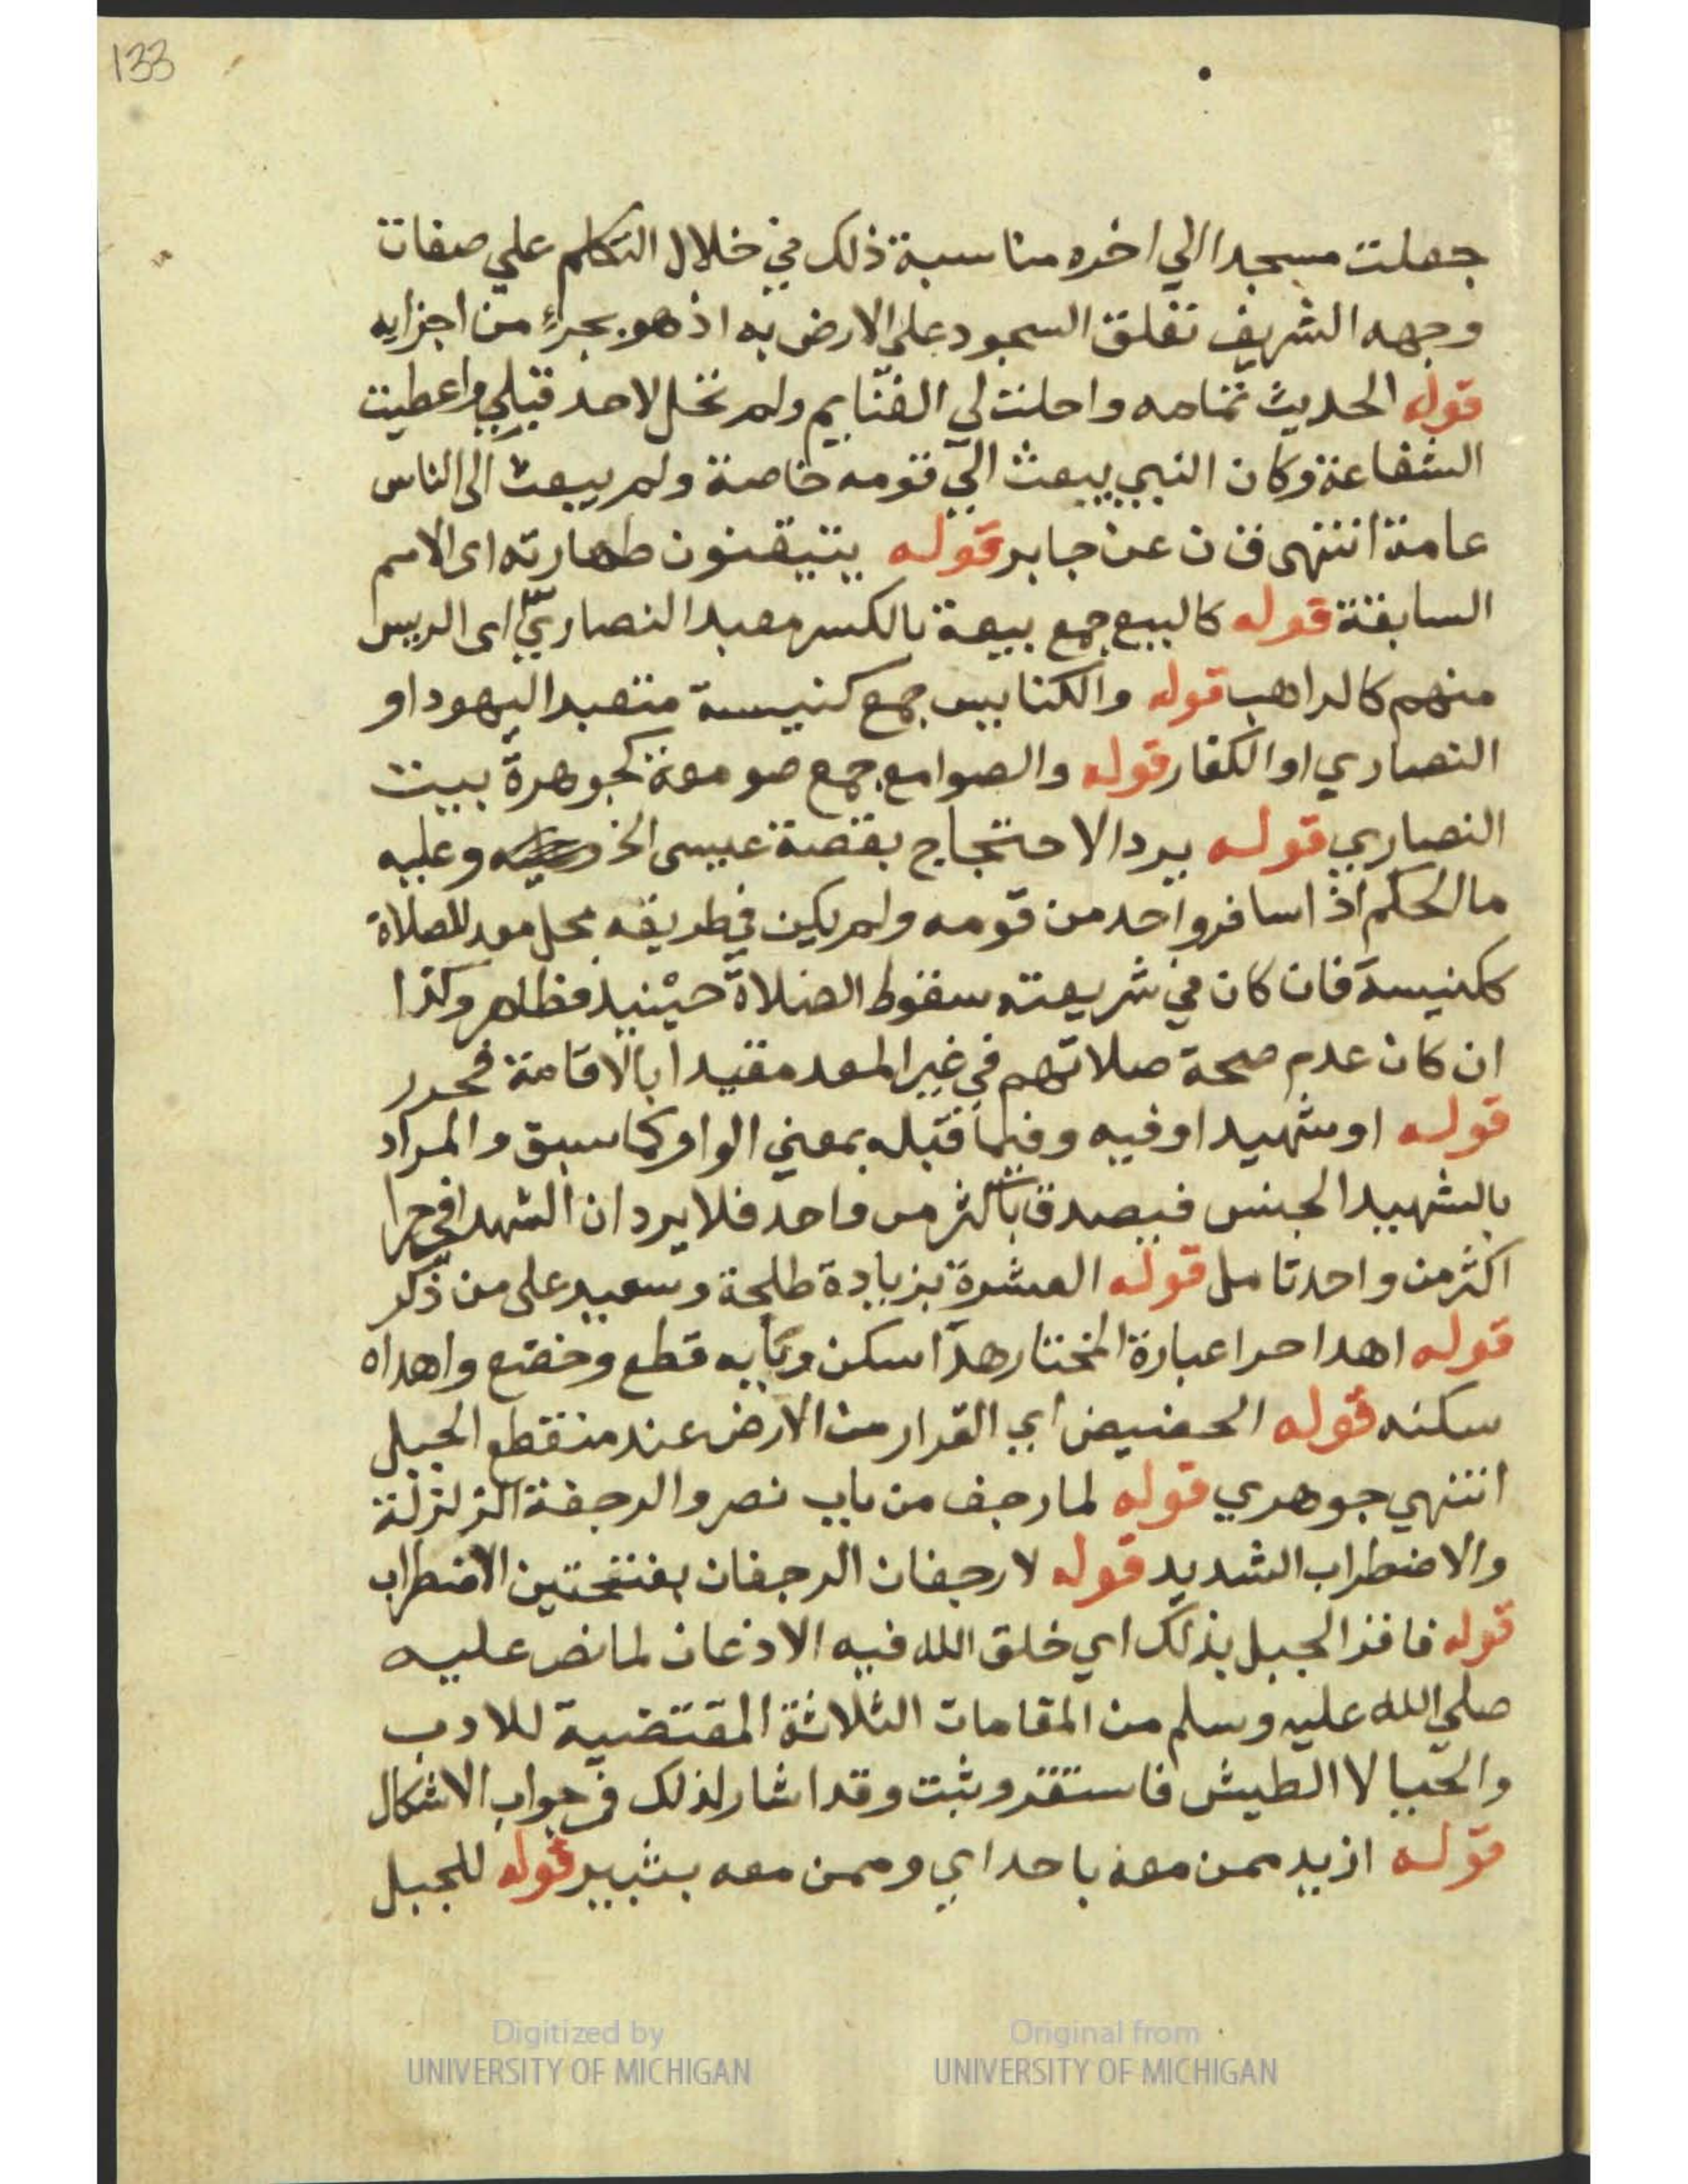 133
جعلت مسجدا الي اخره مناسبة ذلك في خلال التكلم علي صفات
وجهه الشريف تعلق السجود علي الارض به اذ هو بجزءٍ من اجزايه
قوله الحديث تمامه واحلت لي الغنايم ولم تحل لاحد قبلي واعطيت
الشفاعة وكان النبي يبعث الي قومه خاصة ولم يبعث الى الناس
عامة انتهى ق ن عن جابر قوله يتيقنون طهارته اى الامم
السابقة قوله كالبيع جمع بيعة بالكسر معبد النصاري اى الريس
منهم كالراهب قوله والكنايس جمع كنيسة متعبد اليهود او
النصاري او الكفار قوله والصوامع جمع صومعة كجوهرة بيت
النصاري قوله يرد الاحتجاج بقصة عيسى الخ وعليه
ما الحكم اذا سافر واحد من قومه ولم يكن في طريقه محل معد للصلاة
ككنيسة فان كان في شريعته سقوط الصلاة حينيذ فظاهر وكذا
ان كان عدم صحة صلاتهم في غير المعد مقيدا بالاقامة فحرر
قوله او شهيد او فيه وفيما قبله بمعني الواو كما سبق والمراد
بالشهيد الجنس فيصدق باكثر من واحد فلا يرد ان الشهدا في حرا
اكثر من واحد تامل قوله العشرة بزيادة طلحة وسعيد على من ذكر
قوله اهدا حرا عبارة المختار هدا سكن وبابه قطع وخضع واهداه
سكنه قوله الحضيض اي القرار من الارض عند منقطع الجبل
انتهي جوهري قوله لما رجف من باب نصر والرجفة الزلزلة
والاضطراب الشديد قوله لا رجفان الرجفان بفتحتين الاضطراب
قوله فاقر الجبل بذلك اي خلق الله فيه الاذعان لما نص عليه
صلي الله عليه وسلم من المقامات الثلاثة المقتضية للادب
والحيا لا الطيش فاستقر وثبت وقد اشار لذلك في جواب الاشكال
قوله ازيد ممن معه باحد اي وممن معه بثبير قوله للجبل
Digitized by
UNIVERSITY OF MICHIGAN
Original from
UNIVERSITY OF MICHIGAN